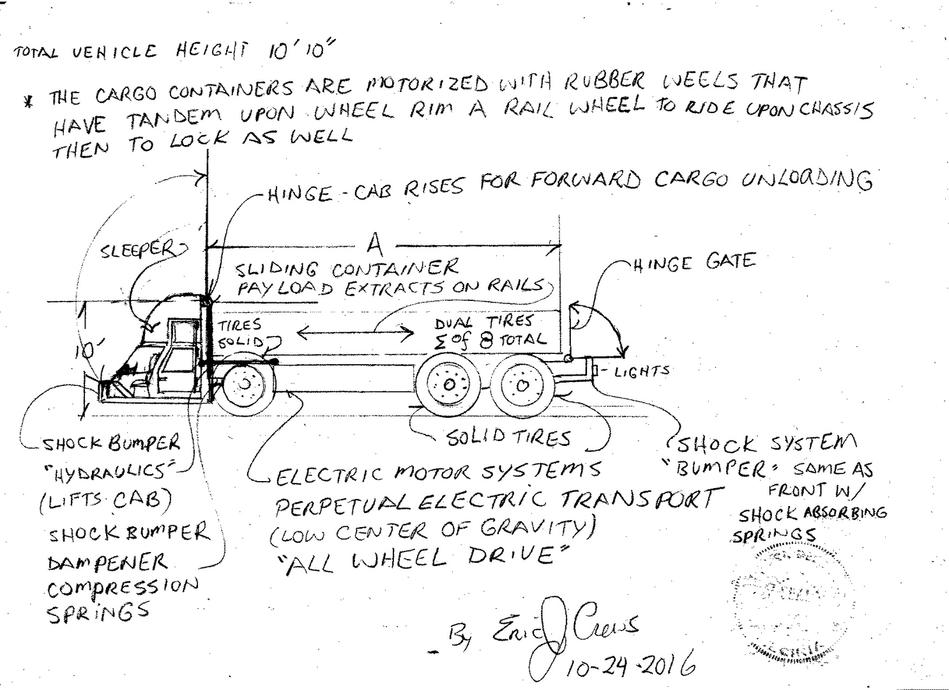 TOTAL VEHICLE HEIGHT 10'10"
* THE CARGO CONTAINERS ARE MOTORIZED WITH RUBBER WEELS THAT
HAVE TANDEM UPON WHEEL RIM A RAIL WHEEL TO RIDE UPON CHASSIS
THEN TO LOCK AS WELL
HINGE - CAB RISES FOR FORWARD CARGO UNLOADING
SLEEPER
A
HINGE GATE
SLIDING CONTAINER
PAYLOAD EXTRACTS ON RAILS
TIRES
SOLID
DUAL TIRES
Σ of 8 TOTAL
10'
LIGHTS
SHOCK BUMPER
"HYDRAULICS"
(LIFTS CAB)
SHOCK BUMPER
DAMPENER
COMPRESSION
SPRINGS
SOLID TIRES
ELECTRIC MOTOR SYSTEMS
PERPETUAL ELECTRIC TRANSPORT
(LOW CENTER OF GRAVITY)
"ALL WHEEL DRIVE"
SHOCK SYSTEM
"BUMPER" SAME AS
FRONT W/
SHOCK ABSORBING
SPRINGS
By Eric J Crews
10-24-2016